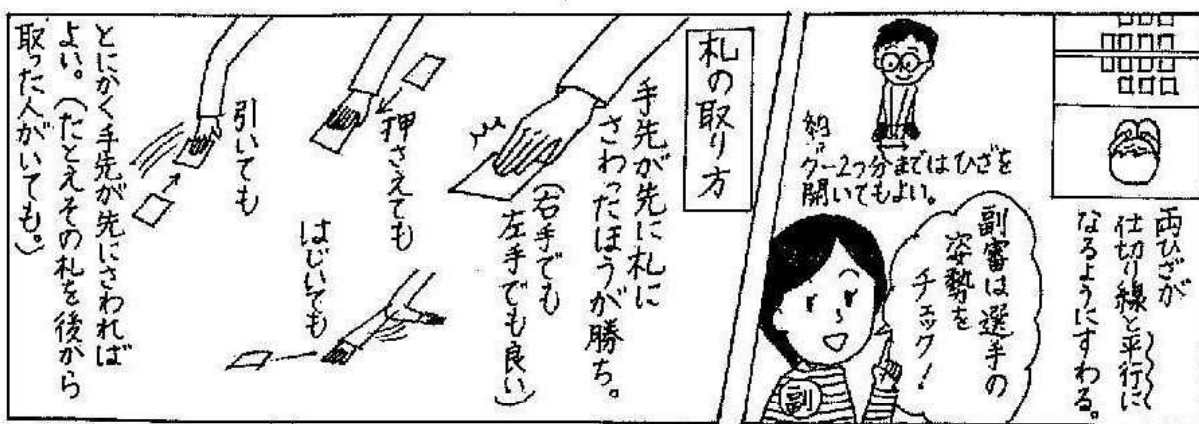 両ひざが
仕切り線と平行に
なるようにすわる。
約
グー2つ分まではひざを
開いてもよい。
副審は選手の
姿勢を
チェック!
副
札の取り方
手先が先に札に
さわったほうが勝ち。
(右手でも
左手でも良い)
押さえても
はじいても
引いても
とにかく手先が先にさわれば
よい。(たとえその札を後から
取った人がいても。)